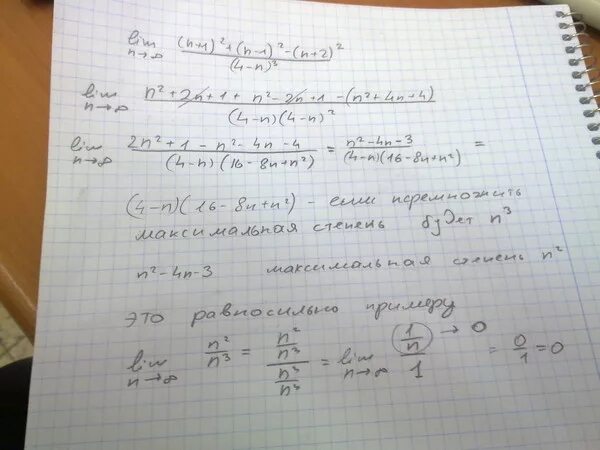 lim n→∞ ((n+1)² + (n-1)² - (n+2)²) / (4-n)³
lim n→∞ (n² + 2n + 1 + n² - 2n + 1 - (n² + 4n + 4)) / ((4-n)(4-n)²)
lim n→∞ (2n² + 1 - n² - 4n - 4) / ((4-n)(16 - 8n + n²)) = (n² - 4n - 3) / ((4-n)(16 - 8n + n²)) =
(4-n)(16 - 8n + n²) - если перемножить
максимальная степень будет n³
n² - 4n - 3 максимальная степень n²
это равносильно примеру
lim n→∞ n²/n³ = (n²/n³)/(n³/n³) = lim n→∞ (1/n)/1 → 0 = 0/1 = 0